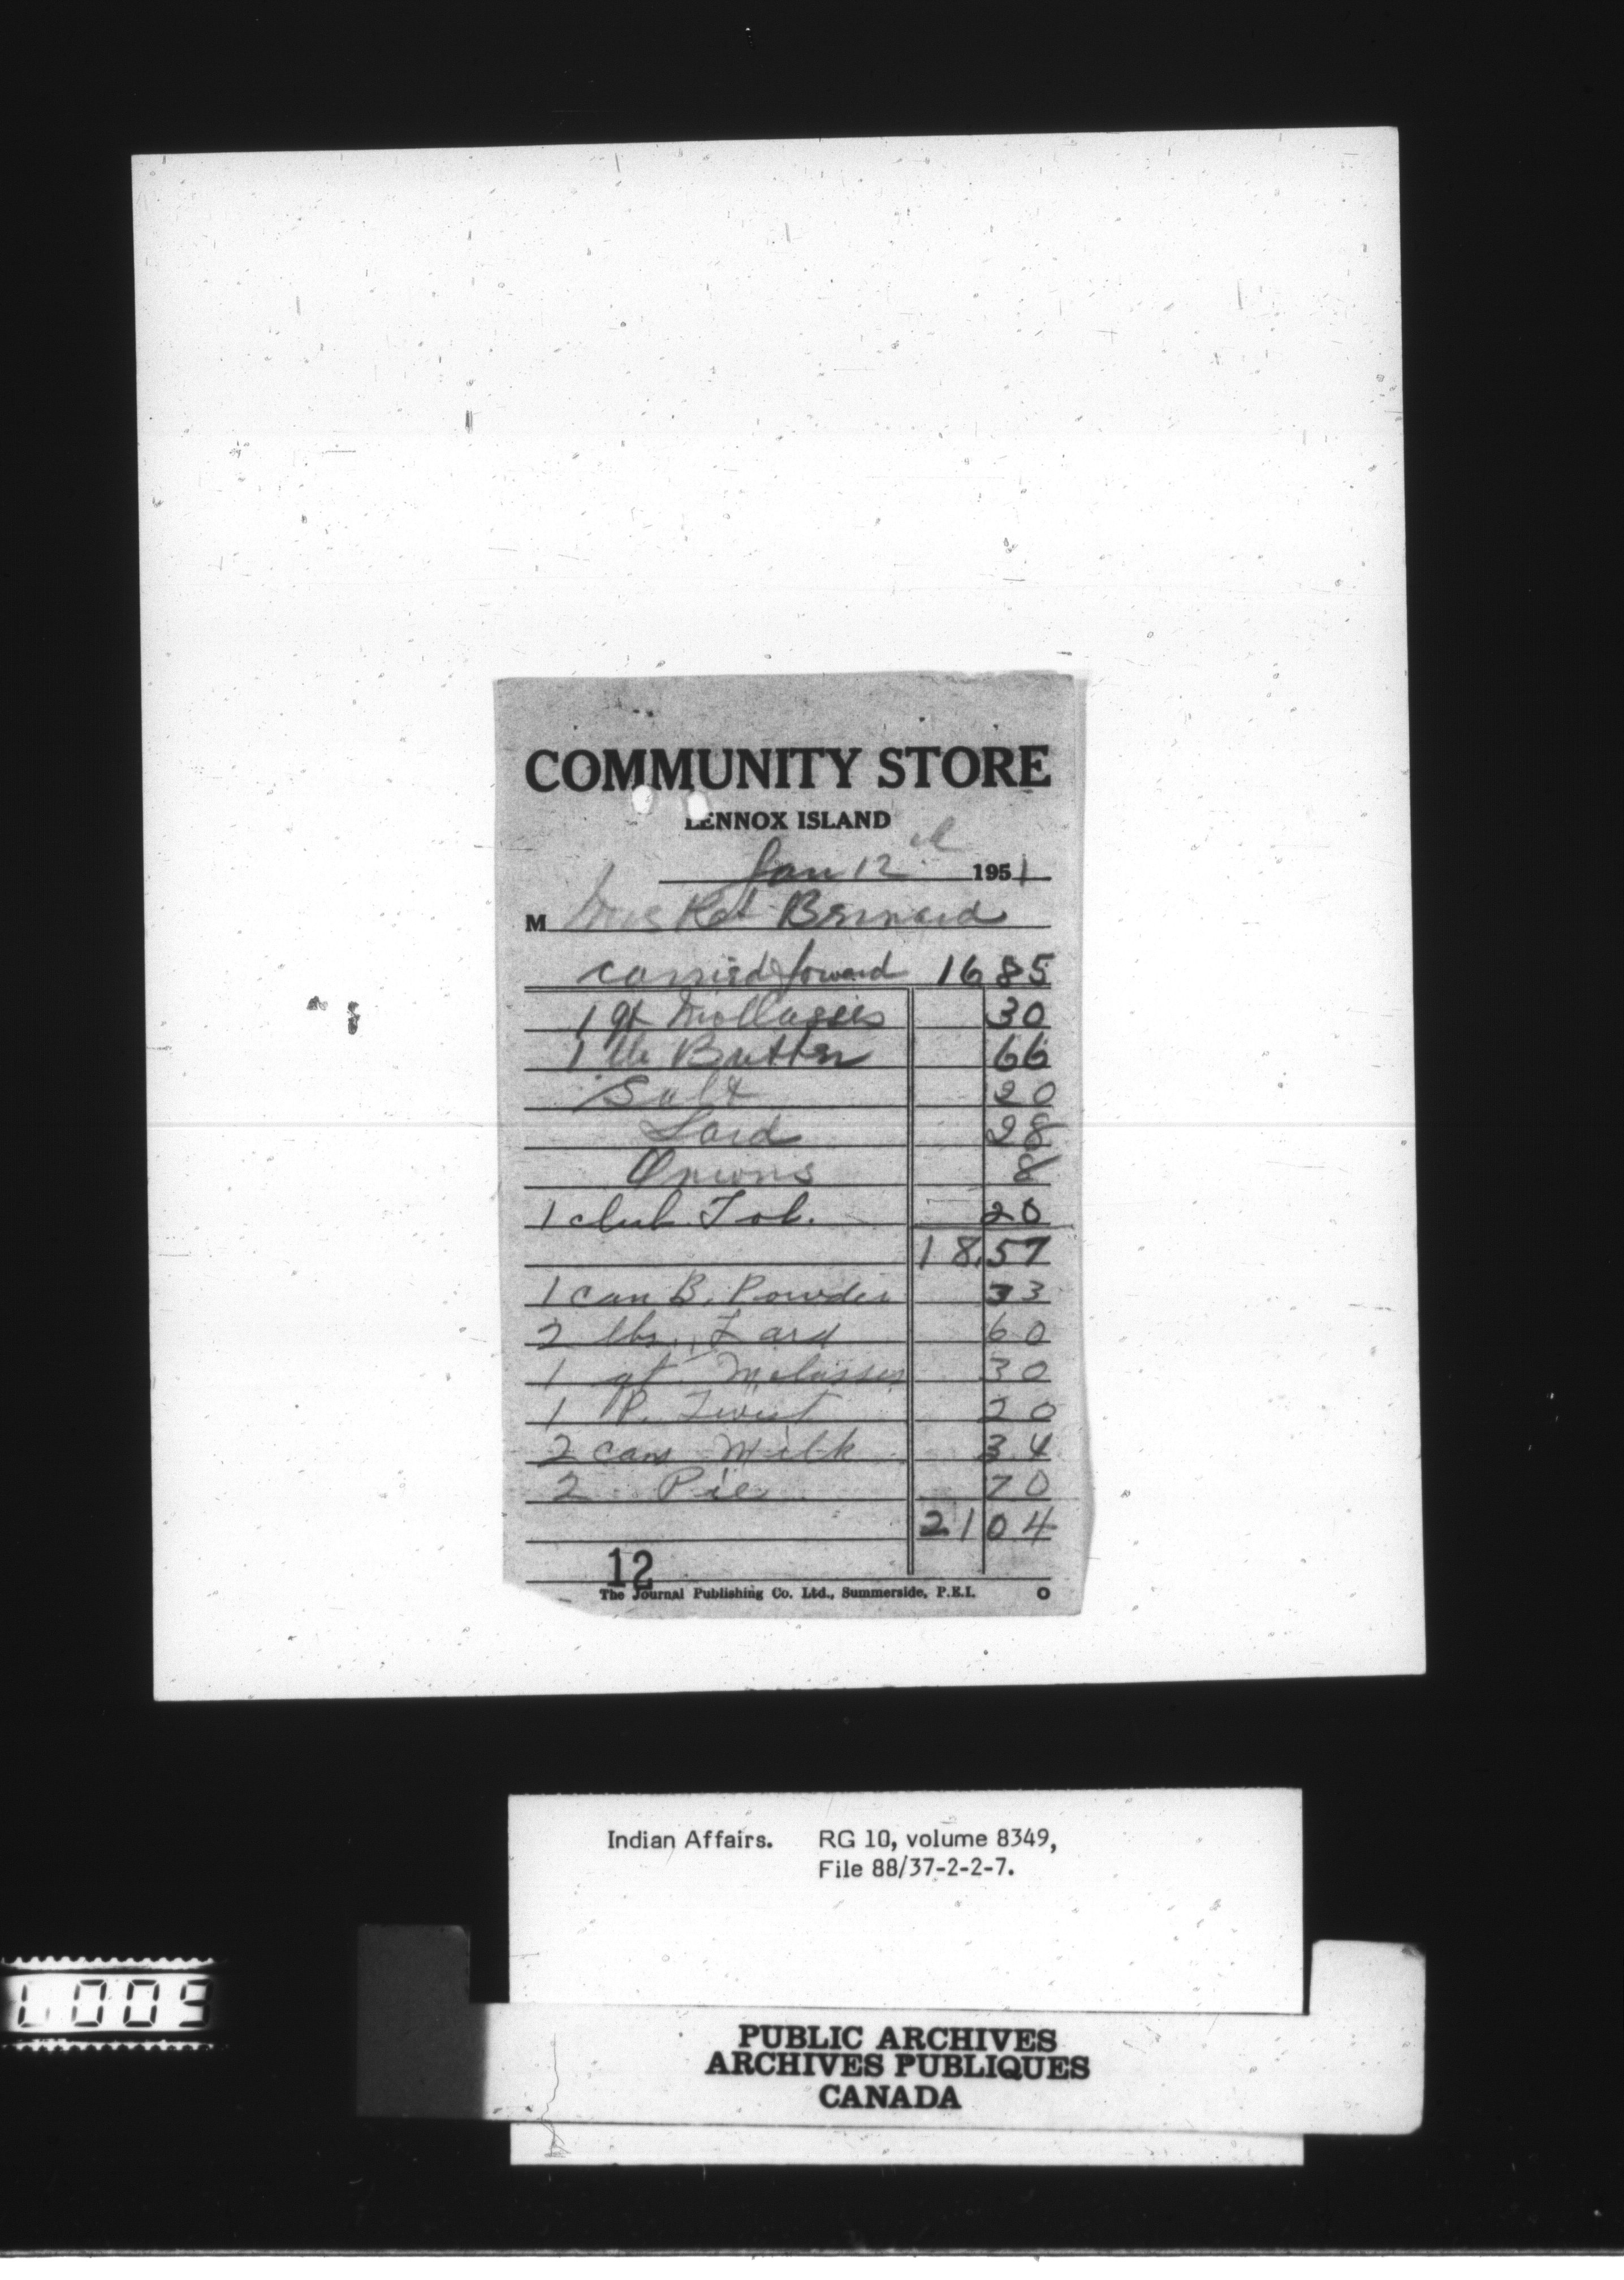 COMMUNITY STORE
LENNOX ISLAND
Jan 12 1951
M Mrs Pat Bernard
carried forward 16 85
1 qt Mollasses 30
1 lb Butter 66
Salt 20
Lard 28
Onions 8
1 club Tob. 20
18.57
1 can B. Powder 33
2 lbs. Lard 60
1 qt Molasses 30
1 P. Twist 20
2 cans Milk 34
2 Pie 70
21 04
12
The Journal Publishing Co. Ltd., Summerside, P.E.I. O
Indian Affairs. RG 10, volume 8349,
File 88/37-2-2-7.
PUBLIC ARCHIVES
ARCHIVES PUBLIQUES
CANADA